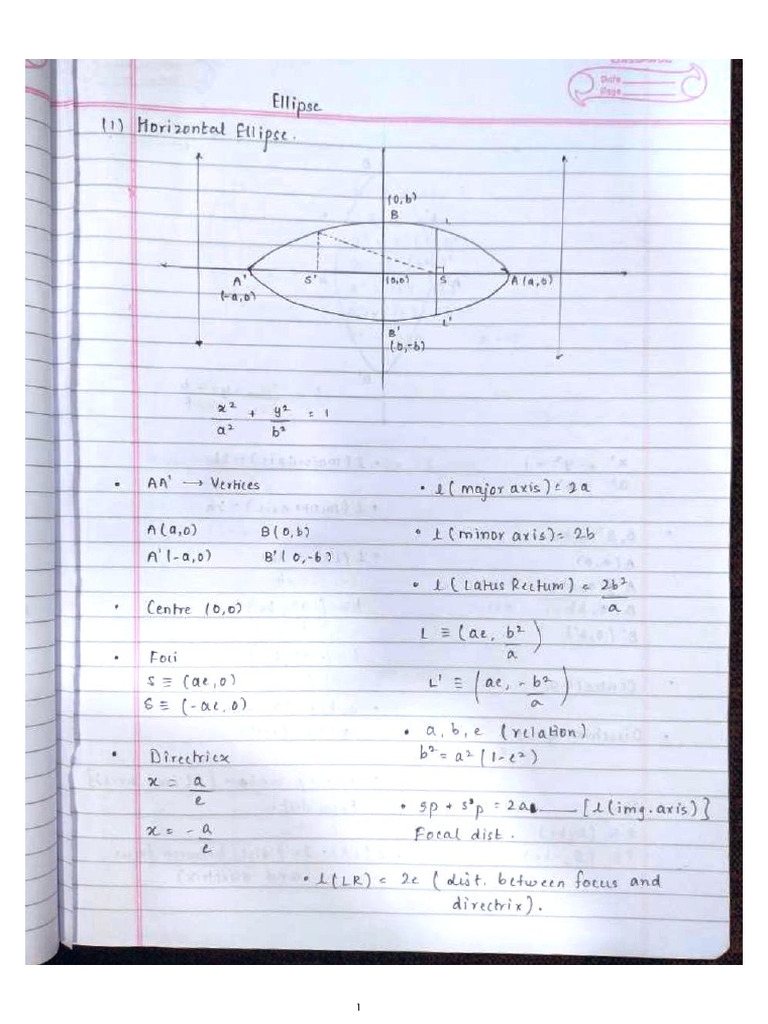 Date
Page
Ellipse
(1) Horizontal Ellipse.
(0,b)
B
L
A'
(-a,0)
S'
(0,0)
S
A (a,0)
B'
(0,-b)
L'
x²/a² + y²/b² = 1
• AA' → Vertices
A(a,0) B(0,b)
A'(-a,0) B'(0,-b)
• Centre (0,0)
• Foci
S ≡ (ae,0)
S ≡ (-ae,0)
• Directriex
x = a/e
x = -a/e
• l(major axis) = 2a
• l(minor axis) = 2b
• l(Latus Rectum) = 2b²/a
L ≡ (ae, b²/a)
L' ≡ (ae, -b²/a)
• a, b, e (relation)
b² = a²(1-e²)
• SP + S'P = 2a ___ [l(img. axis)]
Focal dist.
• l(LR) = 2e (dist. between focus and
directrix).
1